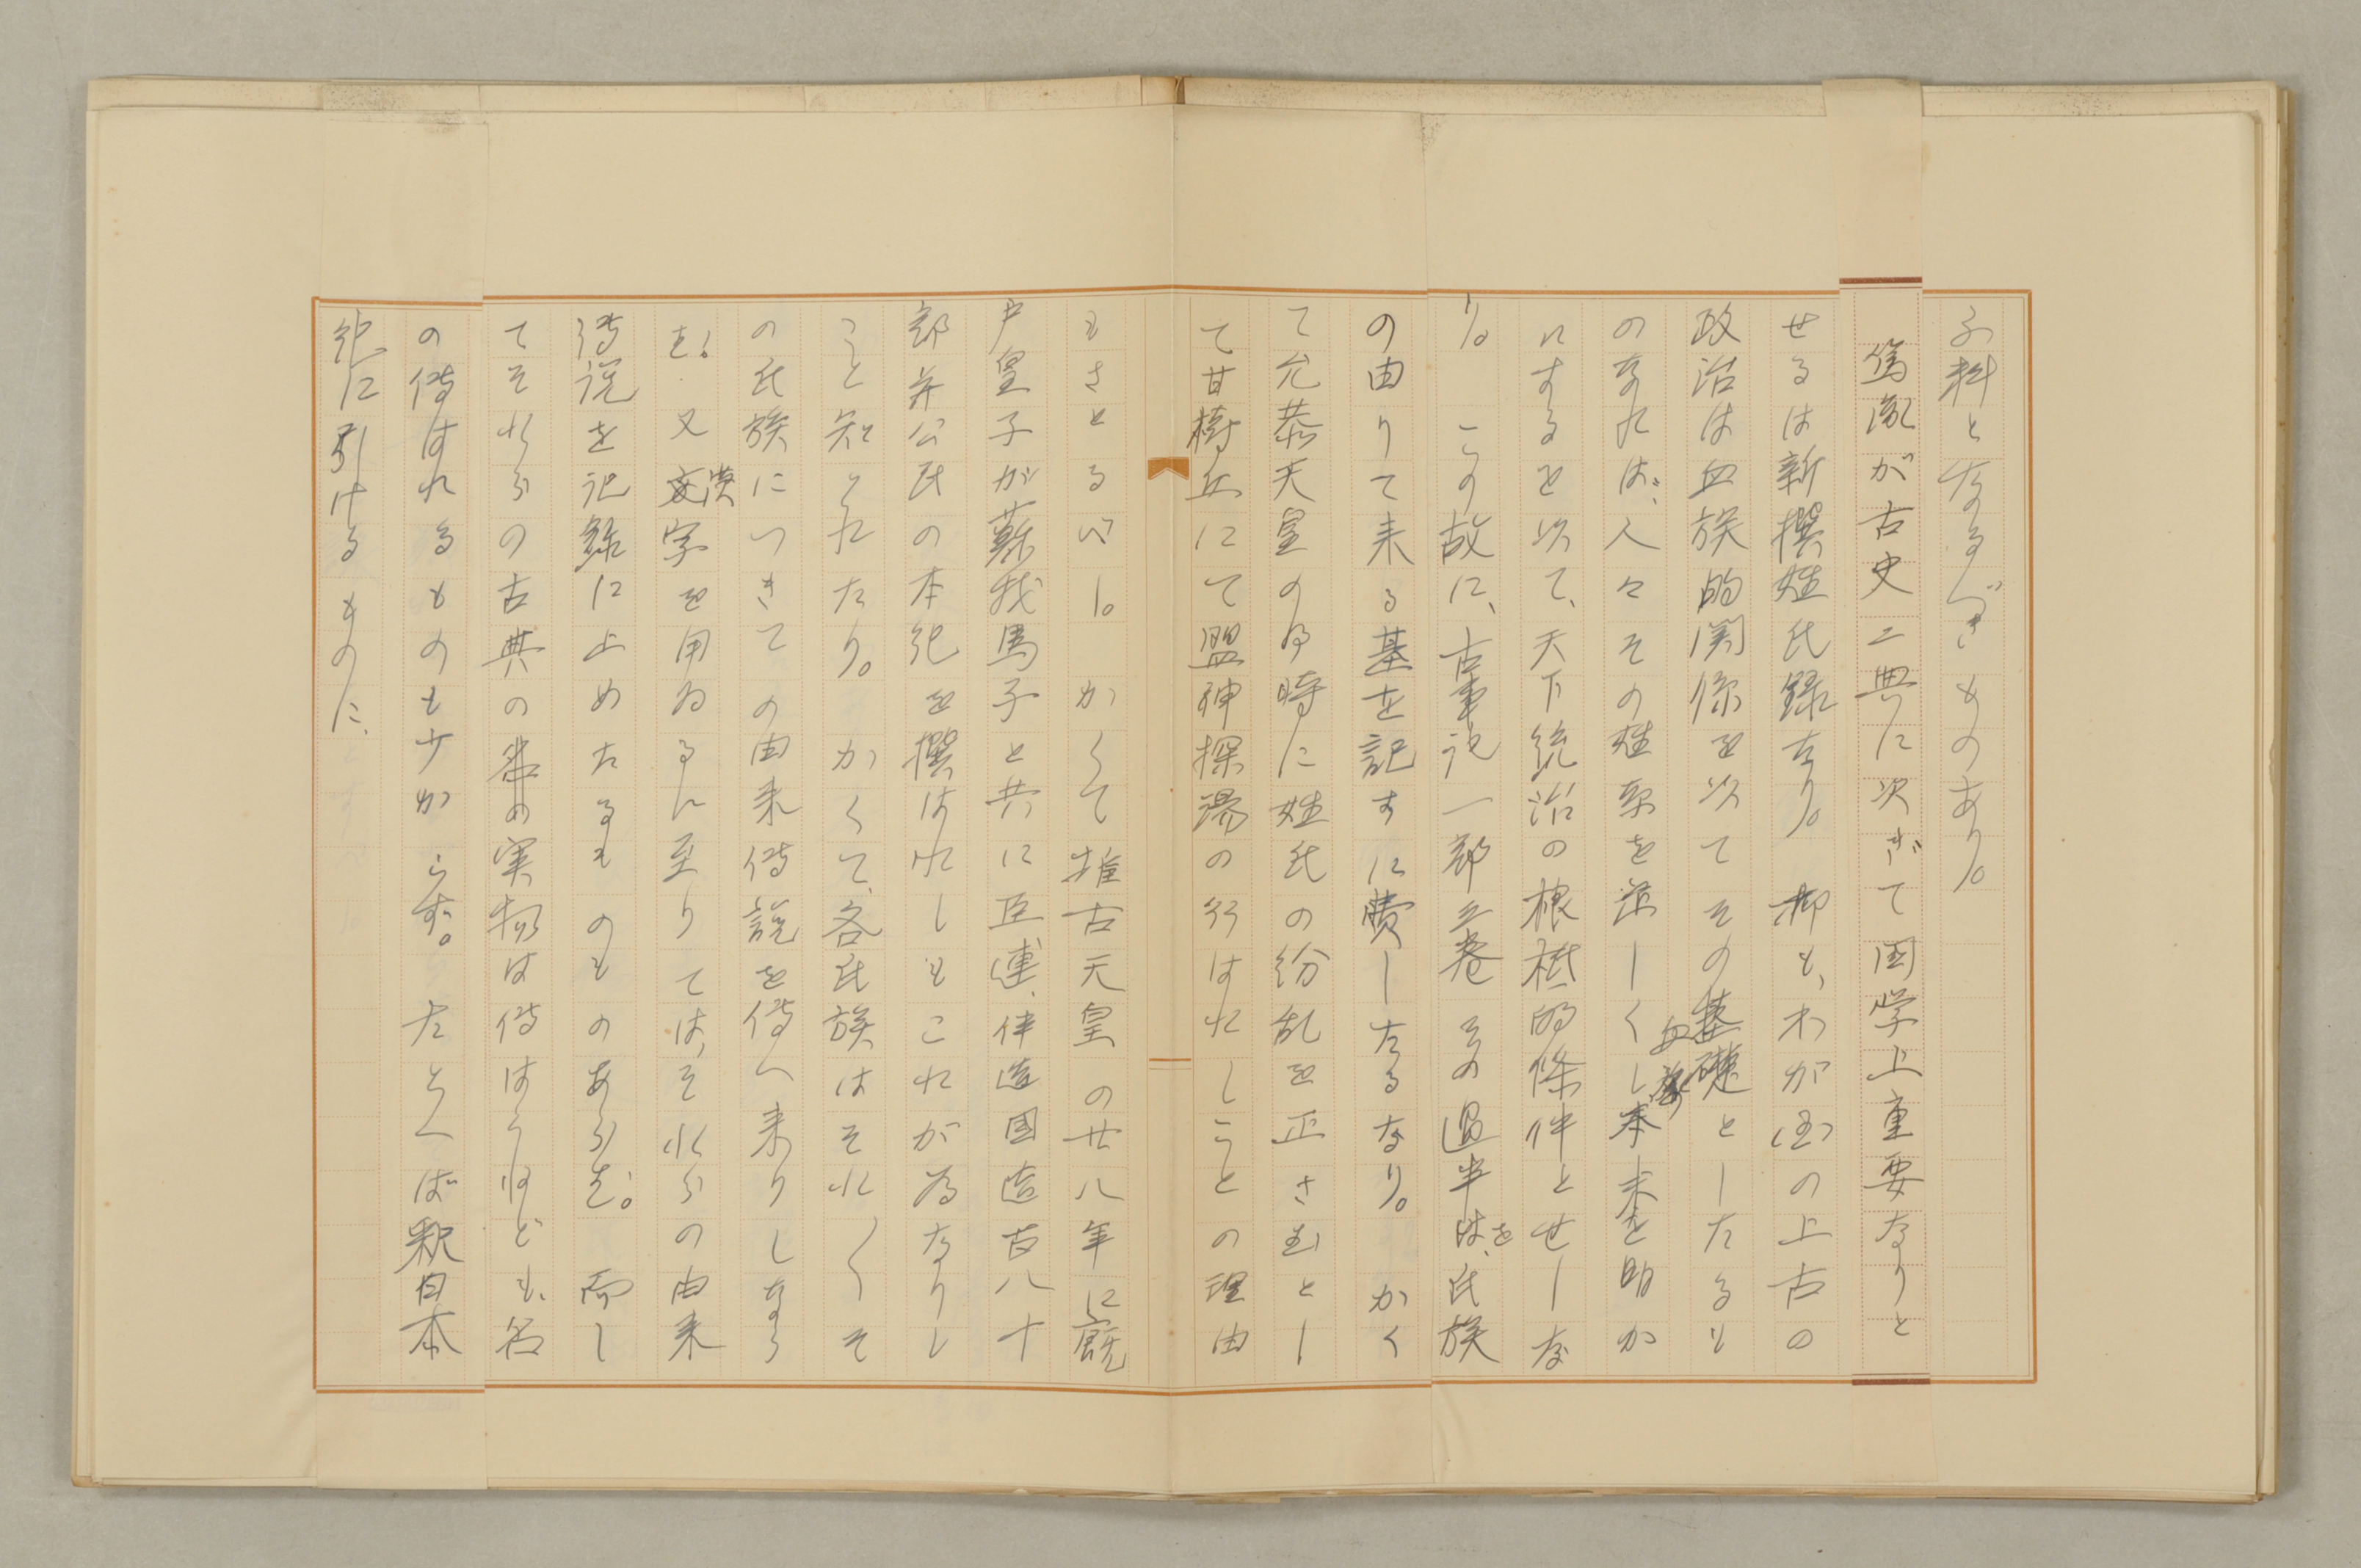 る料となるべきものあり。
篤胤が古史二典に次ぎて国学上重要なりと
せるは新撰姓氏録なり。抑も、わが国の上古の
政治は血族的関係を以てその基礎としたるも
のなれば、人々その姓氏を正しくし血族本末を明か
にするを以て、天下統治の根柢的條件とせしな
り。この故に、古事記一部三巻その過半を、氏族
の由りて来る基を記すに費したるなり。かく
て允恭天皇の御時に姓氏の紛乱を正さむとし
て甘樫丘にて盟神探湯の行はれしことの理由
もさとるべし。かくて推古天皇の廿八年に厩
戸皇子が蘇我馬子と共に臣連、伴造国造百八十
部并公民の本紀を撰ばれしもこれが為なりし
こと知られたり。かくて、各氏族はそれ〱そ
の氏族につきての由来伝説を伝へ来りしなら
む。又漢字を用ゐるに至りては、それらの由来
伝説を記録に止めたるものものあらむ。而し
てそれらの古典の実物は伝はらねども、名
の伝はれるものも少からず。たとへば釈日本
紀に引けるものに、